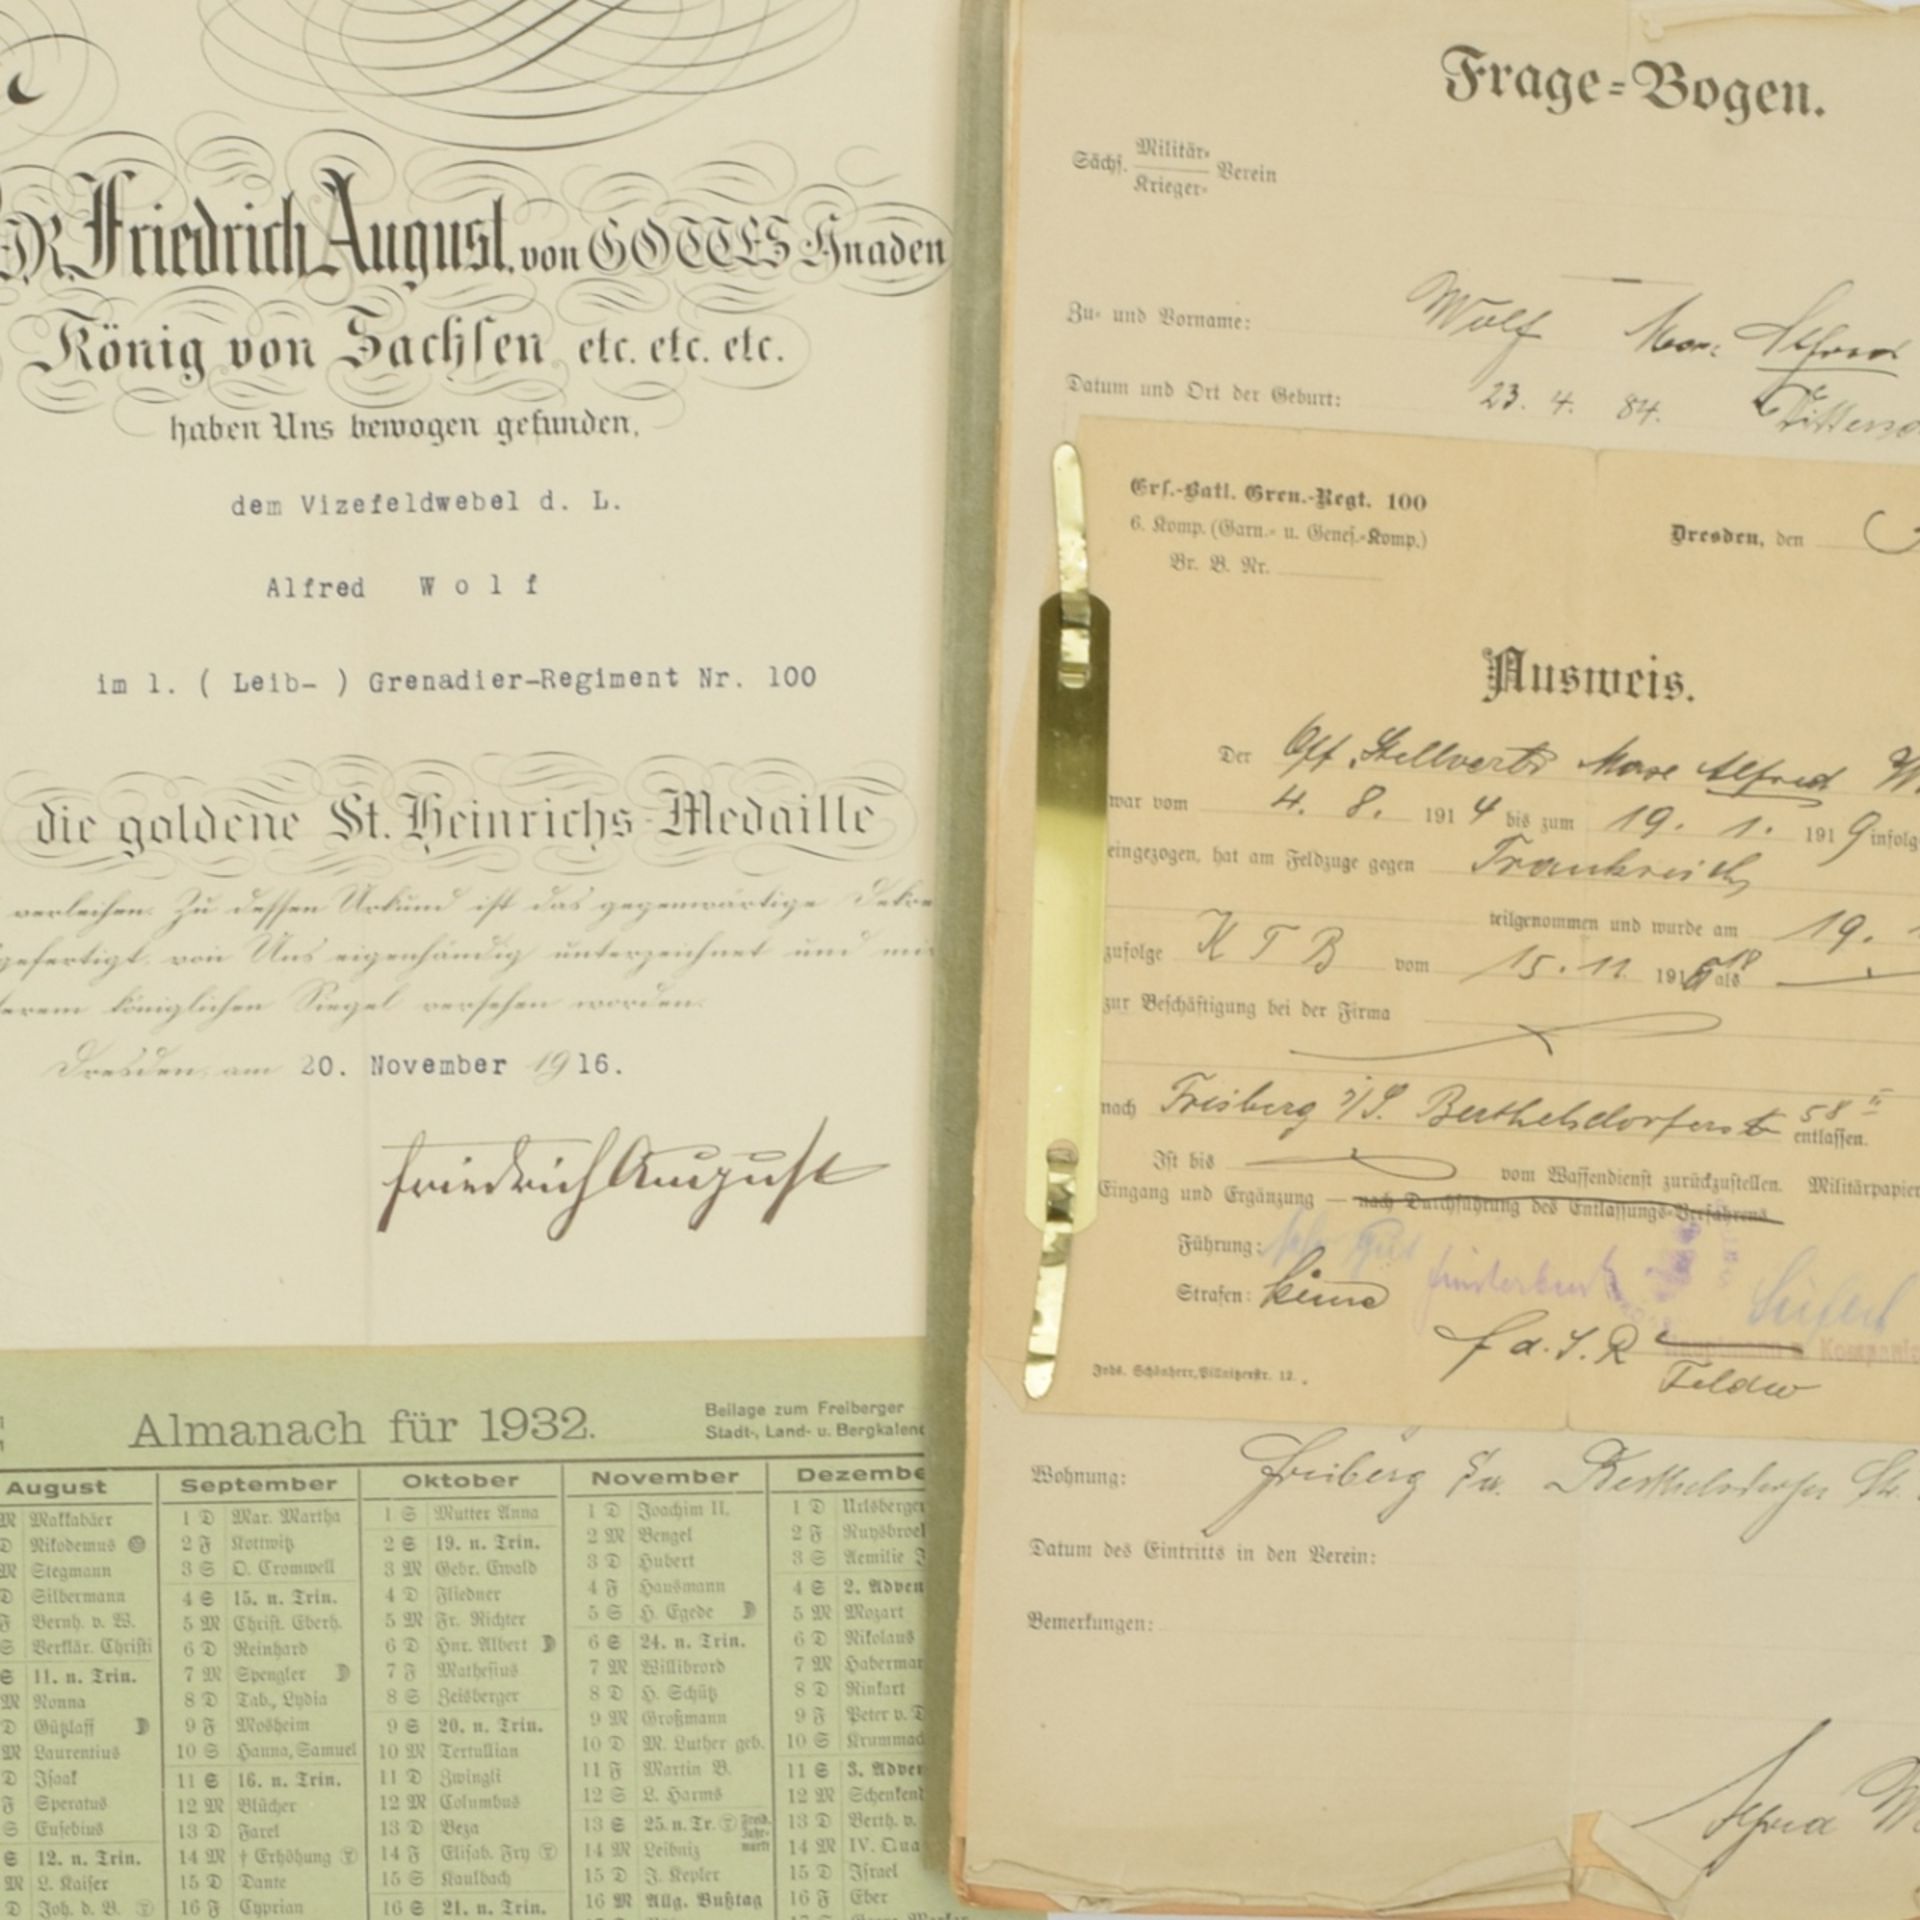 WIR, Friedrich August, von GOTTES Gnaden
König von Sachsen etc. etc. etc.
haben Uns bewogen gefunden,
dem Vizefeldwebel d. L.
Alfred Wolf
im 1. ( Leib- ) Grenadier-Regiment Nr. 100
die goldene St. Heinrichs-Medaille
verleihen. Zu dessen Urkund ist das gegenwärtige
gefertigt, von Uns eigenhändig unterzeichnet und
königlichen Siegel versehen worden.
Dresden, am 20. November 1916.
Friedrich August
Almanach für 1932.
Beilage zum Freiberger
Stadt-, Land- u. Bergkalend
August
M Makkabäer
D Nikodemus
M Stegmann
D Silbermann
F Bernh. v. W.
S Verklär. Christi
S 11. n. Trin.
M Nonna
D Gützlaff
M Laurentius
D Isaak
F Speratus
S Eusebius
S 12. n. Trin.
M L. Kaiser
D Joh. d. B.
September
1 D Mar. Martha
2 F Kottwitz
3 S O. Cromwell
4 S 15. n. Trin.
5 M Christ. Eberh.
6 D Reinhard
7 M Spengler
8 D Tab., Lydia
9 F Mosheim
10 S Hanna, Samuel
11 S 16. n. Trin.
12 M Blücher
13 D Farel
14 M † Erhöhung
15 D Dante
16 F Cyprian
Oktober
1 S Mutter Anna
2 S 19. n. Trin.
3 M Gebr. Ewald
4 D Fliedner
5 M Fr. Richter
6 D Hnr. Albert
7 F Mathesius
8 S Zeisberger
9 S 20. n. Trin.
10 M Tertullian
11 D Zwingli
12 M Columbus
13 D Beza
14 F Elisab. Fry
15 S Kaulbach
16 S 21. n. Trin.
November
1 D Joachim II.
2 M Bengel
3 D Hubert
4 F Hausmann
5 S H. Egede
6 S 24. n. Trin.
7 M Willibrord
8 D H. Schütz
9 M Großmann
10 D M. Luther geb.
11 F Martin B.
12 S L. Harms
13 S 25. n. Tr. Freib. Jahr-markt
14 M Leibniz
15 D J. Kepler
16 M Allg. Bußtag
Dezembe
1 D Urlsberger
2 F Ruysbroek
3 S Aemilie J
4 S 2. Adven
5 M Mozart
6 D Nikolaus
7 M Haberman
8 D Rinkart
9 F Peter v. D
10 S Krummac
11 S 3. Adven
12 M Schenkend
13 D Berth. v.
14 M IV. Qua
15 D Israel
16 F Eber
Frage-Bogen.
Sächs. Militär- Krieger- Verein
Zu- und Vorname: Wolf Max Alfred
Datum und Ort der Geburt: 23. 4. 84.
Ers.-Batl. Gren.-Regt. 100
6. Komp. (Garn.- u. Genes.-Komp.)
Br. B. Nr.
Dresden, den
Ausweis.
Der Off. Stellvertr Max Alfred W
war vom 4. 8. 1914 bis zum 19. 1. 1919 infolg
eingezogen, hat am Feldzuge gegen Frankreich
teilgenommen und wurde am 19.
zufolge K T B vom 15. 11 191 18 als
zur Beschäftigung bei der Firma
nach Freiberg i/S. Berthelsdorferstr 58 II entlassen.
Ist bis vom Waffendienst zurückzustellen. Militärpapier
Eingang und Ergänzung — nach Durchführung des Entlassungs-Verfahrens
Führung: sehr gut
Strafen: keine
f d. J. R
Hauptmann u. Kompanie
Feldw
Johs. Schönherr, Pillnitzerstr. 12.
Wohnung: Freiberg Sa. Berthelsdorfer Str.
Datum des Eintritts in den Verein:
Bemerkungen:
Alfred W